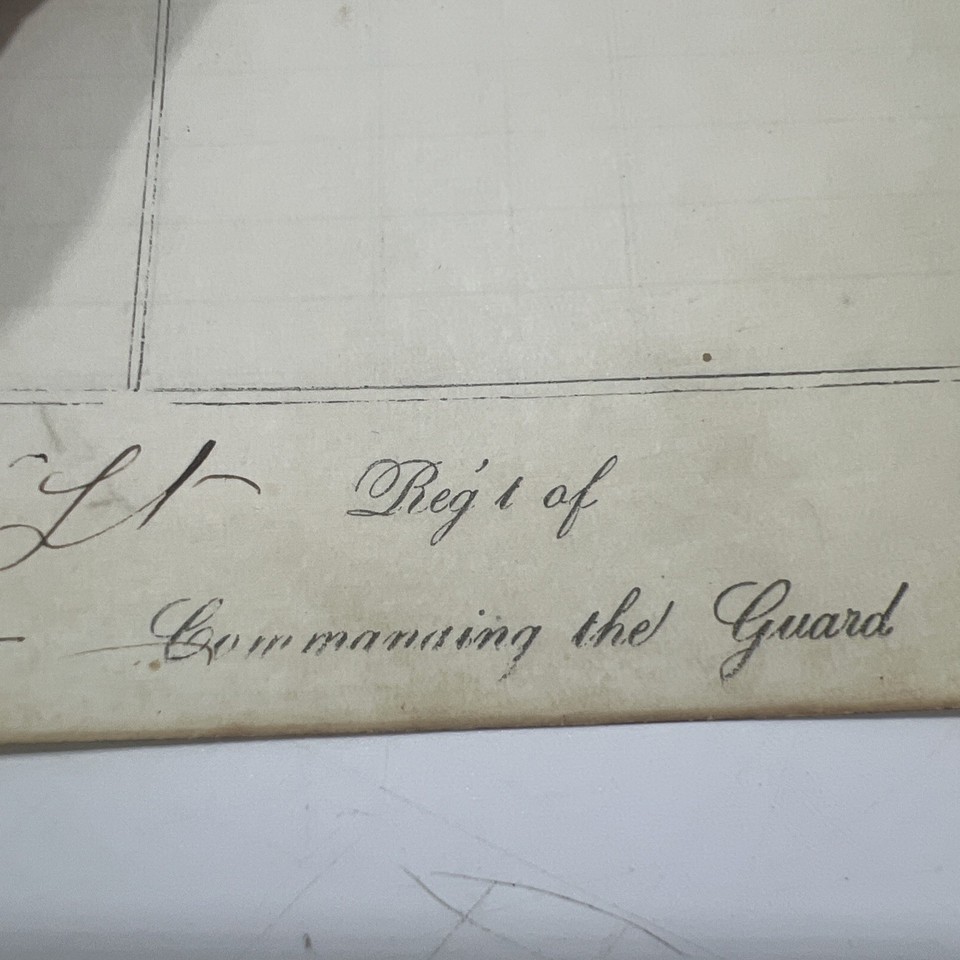 Lt Reg't of
Commanding the Guard